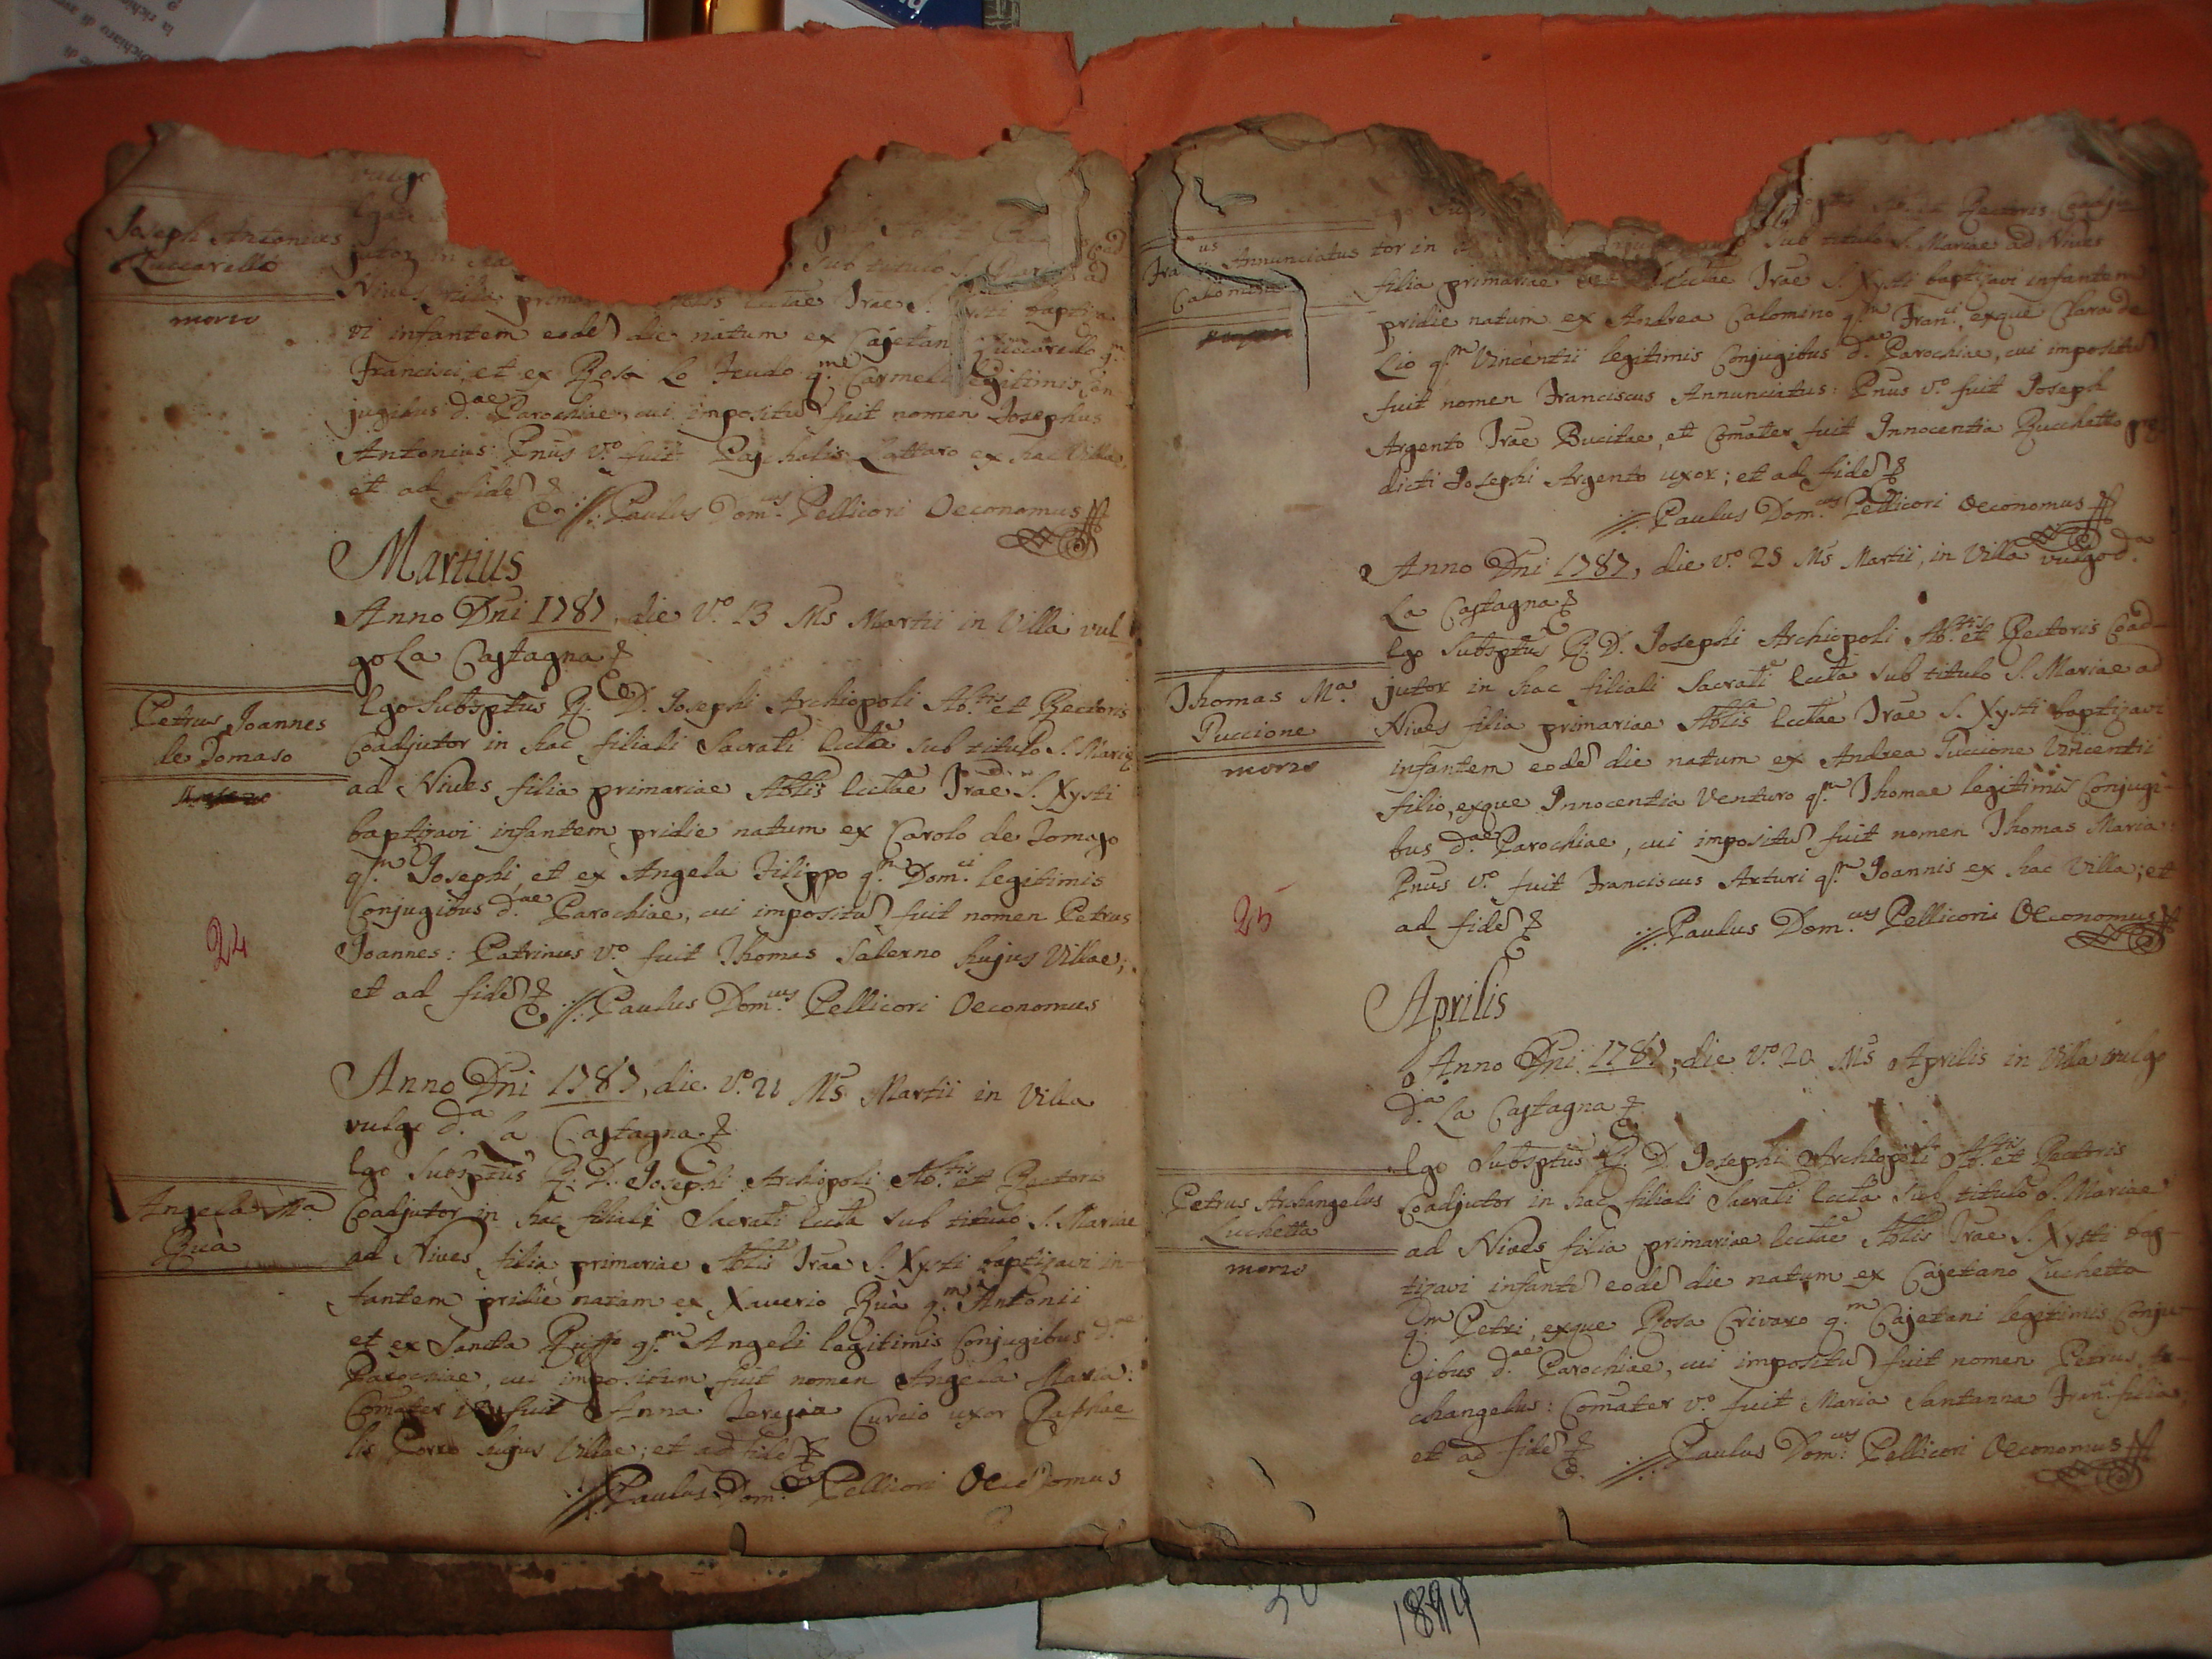 Joseph Antonius
Zuccarello
morto
vulgo
Ego
jutor in hac sub titulo S. Mariae ad
Nives filia primariae Ecctae Trae S. Xysti baptiza
vi infantem eode die natum ex Cajetano Zuccarello q.m
Francisci, et ex Rosa Lo Feudo q.m Carmeli legitimis Con
jugibus d.ae Parochiae, cui impositu fuit nomen Josephus
Antonius: Pnus v.o fuit Paschalis Lattaro ex hac Villa,
et ad fide
Paulus Dom.cus Pellicori Oeconomus
Martius
Anno Dni 1787, die v.o 13 Ms Martii in Villa vul
go La Castagna
Petrus Joannes
de Tomaso
Ego Subsptus R. D. Josephi Archiopoli Ab.tis et Rectoris
Coadjutor in hac filiali Sacrati Eccta sub titulo S. Mariae
ad Nives filia primariae Abtis Ecctae Trae S. Xysti
baptizavi infantem pridie natum ex Carolo de Tomaso
q.m Josephi, et ex Angela Filippo q.m Dom.ci legitimis
Conjugibus d.ae Parochiae, cui impositu fuit nomen Petrus
Joannes: Patrinus v.o fuit Thomas Salerno hujus Villae;
et ad fide
Paulus Dom.cus Pellicori Oeconomus
24
Anno Dni 1787, die v.o 21 Ms Martii in Villa
vulgo d.a La Castagna
Angela M.a
Ruà
Ego Subsptus R. D. Josephi Archiopoli Ab.tis et Rectoris
Coadjutor in hac filiali Sacrati Eccta sub titulo S. Mariae
ad Nives filia primariae Abtis Trae S. Xysti baptizavi in-
fantem pridie natam ex Xaverio Ruà q.m Antonii
et ex Santa Ruffo q.m Angeli legitimis Conjugibus d.ae
Parochiae, cui impositum fuit nomen Angela Maria:
Comater v.o fuit Anna Teresia Curcio uxor Raphae
lis Porco hujus Villae; et ad fide
Paulus Dom.cus Pellicori Oeconomus
Fra.cus Annunciatus
Calomino
et Rectoris Coadju
tor in sub titulo S. Mariae ad Nives
filia primariae Ecctae Trae S. Xysti baptizavi infantem
pridie natum ex Andrea Calomino q.m Fran.ci, exque Clara de
Lio q.m Vincentii legitimis Conjugibus d.ae Parochiae, cui impositu
fuit nomen Franciscus Annunciatus: Pnus v.o fuit Joseph
Argento Trae Bucitae, et Comater fuit Innocentia Zucchetto pre
dicti Josephi Argento uxor; et ad fide
Paulus Dom.cus Pellicori Oeconomus
Anno Dni 1787, die v.o 25 Ms Martii, in Villa vulgo d.a
La Castagna
Thomas M.a
Puccione
morto
Ego Subsptus R. D. Josephi Archiopoli Ab.tis et Rectoris Coad-
jutor in hac filiali Sacrati Eccta sub titulo S. Mariae ad
Nives filia primariae Abtis Ecctae Trae S. Xysti baptizavi
infantem eode die natum ex Andrea Puccione Vincentii
filio, exque Innocentia Venturo q.m Thomae legitimis Conjugi-
bus d.ae Parochiae, cui impositu fuit nomen Thomas Maria:
Pnus v.o fuit Franciscus Arturi q.m Joannis ex hac Villa; et
ad fide
Paulus Dom.cus Pellicori Oeconomus
25
Aprilis
Anno Dni 1787, die v.o 20 Ms Aprilis in Villa vulgo
d.a La Castagna
Petrus Archangelus
Luchetta
morto
Ego Subsptus R. D. Josephi Archiopoli Ab.tis et Rectoris
Coadjutor in hac filiali Sacrati Eccta sub titulo S. Mariae
ad Nives filia primariae Ecctae Abtis Trae S. Xysti bap-
tizavi infante eode die natum ex Cajetano Luchetta
q.m Petri, exque Rosa Crivaro q.m Cajetani legitimis Conju-
gibus d.ae Parochiae, cui impositu fuit nomen Petrus Ar-
changelus: Comater v.o fuit Maria Santanna Fran.ci filia;
et ad fide
Paulus Dom.cus Pellicori Oeconomus